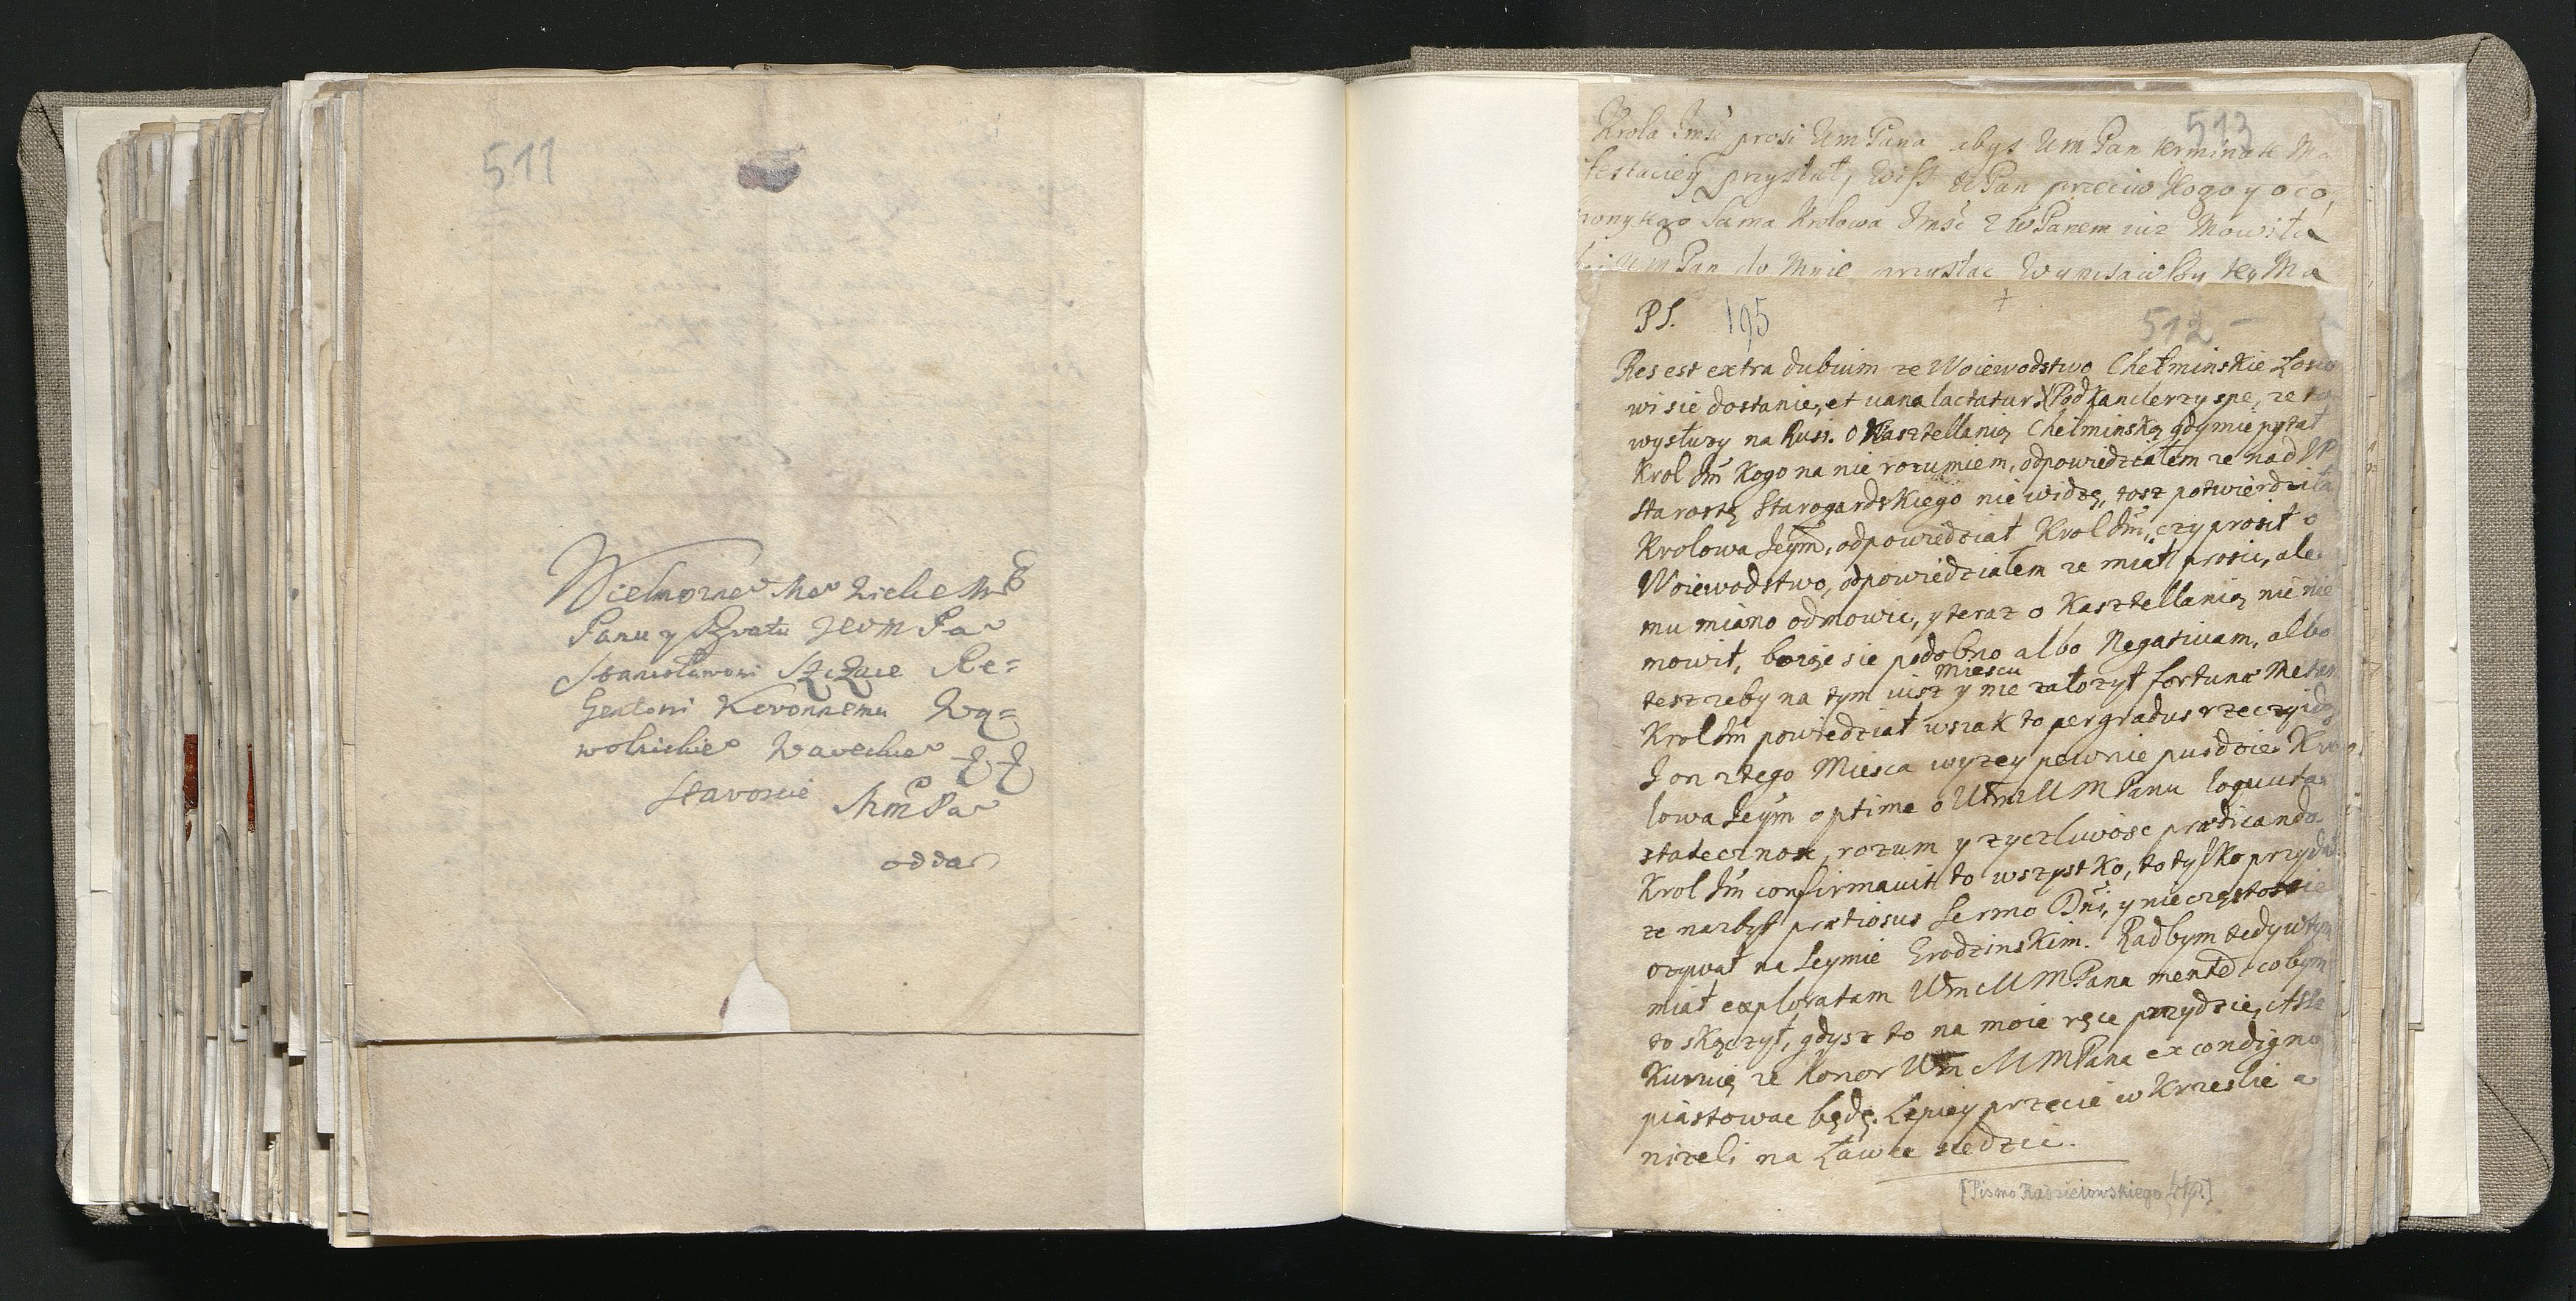 511
Wielmożne Me
Panu y Bratu Jeo M Pa
Stanisławowi Szczuce Re=
Gentowi Koronnemu Wą=
wolnickie Wareckie
Staroscie MmPa
oddać
513
Krola Jmśc prosi UmPana abyś UmPan terminate Ma
festaciey przysłał, wisz WPan przeciw kogo y o co,
Sama Krolowa Jmśc z WPanem iuz Mowiła
UmPan do Mnie przysłac Ma
PS. 195
512
Res est extra dubium ze Woiewodstwo Chełminskie Łosio
wi sie dostanie, et uana lactatur X Podkanclerzy spe, ze to
wysłuzy na Rusi. O Kasztellanią Chełminską gdy mie pytał
Krol Jm̃ Kogo na nie rozumiem, odpowiedziałem ze nad JP
starostę Starogardskiego nie widzę, tosz potwierdziła
Krolowa Jeym̃, odpowiedział Krol Jm̃, czy prosił o
Woiewodstwo, odpowiedziałem ze miał prosic, ale
mu miano odmowic, y teraz o Kasztellanią nie nie
mowił, boiąc sie podobno albo Negatiuam, albo
tesz zeby na tym iusz Miescu y nie załozył fortuna Metam
Krol Jm̃ powiedział wszak to per gradus rzeczy idą
I on z tego Miesca wyzey pewnie puidzie. Kro
lowa Jeym̃ optime o Wm̃ M M Panu loquuta
statecznosc, rozum y zyczliwosc prædicando
Krol Jm̃ confirmauit to wszystko, to tylko przydał
ze nazbyt prætiosus Sermo Dni, y nieczęsto sie
ozywał na Seymie Grodzinskim. Radbym tedy w tym
miał exploratam Wm̃ M M Pana mentem cobym
to skączył, gdysz to na moie ręce przydzie, Asse
kuruię ze honor Wm̃ M M Pana ex condigno
piastowac będę. Lepiey przecie w Krzesle a
nizeli na Ławce siedziec.
[Pismo Radziejowskiego]